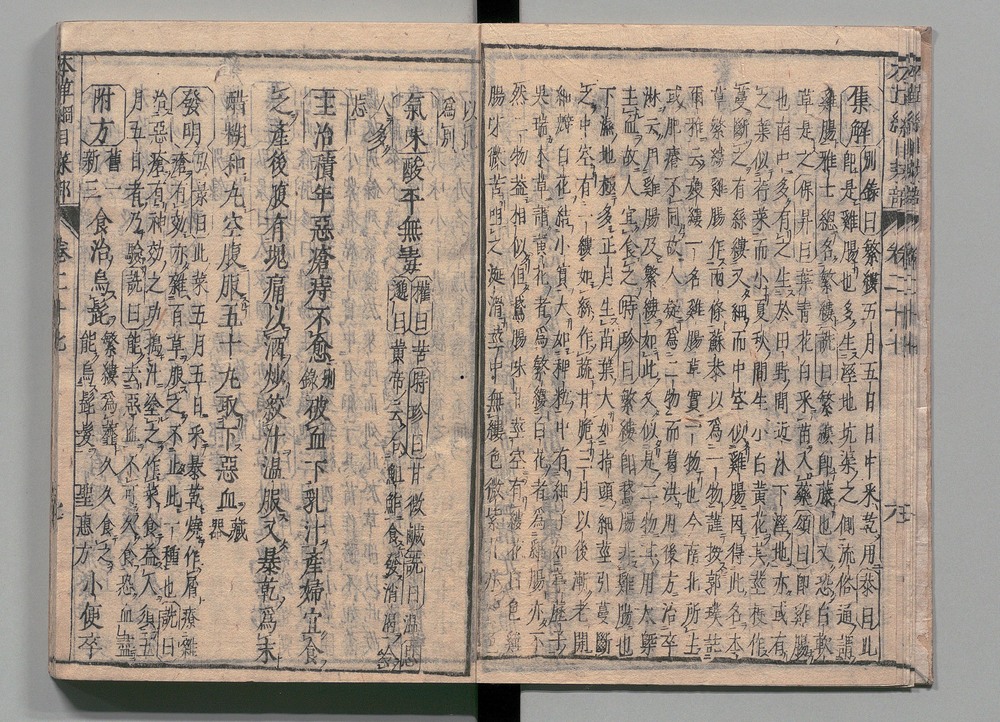 集解 別錄曰繁縷五月五日日中采乾用恭曰此
即是雞腸也多生溼地坑渠之側流俗通謂
雞腸雅士總名繁縷詵曰繁縷即藤也又恐白軟
草是之保昇曰葉青花白采苗入藥頌曰即雞腸
也南中多有之生於田野間近水下溼地亦或有
之葉似荇菜而小夏秋間生小白黃花其莖梗作
蔓斷之有絲縷又細而中空似雞腸因得此名本
草繁縷雞腸作兩條蘇恭以為一物謹按郭璞
爾雅云蔜縷一名雞腸草實一物也今南北所生
或肥瘠不同故人疑為二物而葛洪肘後方治卒
淋云用雞腸及繁縷如此又似是二物其用大槩
主血故人宜食之時珍曰繁縷即鵝腸非雞腸也
下溼地極多正月生苗葉大如指頭細莖引蔓斷
之中空有一縷如絲作蔬甘脆三月以後漸老開
細瓣白花結小實大如稗粒中有細子如葶藶子
吳瑞本草謂黃花者為繁縷白花者為雞腸亦不
然二物蓋相似但鵝腸味甘莖空有縷花白色雞
腸味微苦咀之涎滑莖中無縷色微紫花亦紫色
以此
為別
氣味酸平無毒 權曰苦時珍曰甘微鹹詵曰溫思
邈曰黃帝云合䱉鮓食發消渴令
人多
忘
主治積年惡瘡痔不愈別錄破血下乳汁產婦宜食
之產後腹有塊痛以酒炒絞汁溫服又暴乾為末
醋糊和丸空腹服五十丸取下惡血藏器
發明 弘景曰此菜五月五日采暴乾燒作屑療雜
瘡有效亦雜百草服之不止此一種也詵曰
治惡瘡有神效之功搗汁塗之作菜食益人須五
月五日者乃驗又曰能去惡血不可久食恐血盡
附方 舊一新二 食治烏髭 繁縷為虀久久食之能烏髭髮 聖惠方 小便卒
本草綱目菜部 卷二十七